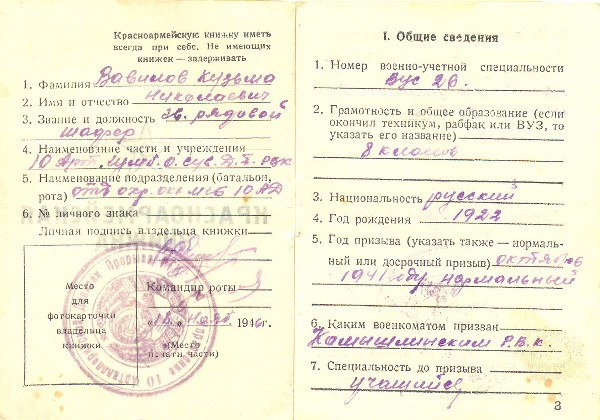 Красноармейскую книжку иметь
всегда при себе. Не имеющих
книжек — задерживать
1. Фамилия Вавилов Кузьма
2. Имя и отчество Николаевич
3. Звание и должность гв. рядовой
шофер
4. Наименование части и учреждения
10 Арт.
5. Наименование подразделения (батальон,
рота) отд. охр. 10 АД
6. № личного знака
Личная подпись владельца книжки
Место
для
фотокарточки
владельца
книжки
Командир роты
1946г.
(Место
печати части)
Прорыва
10
I. Общие сведения
1. Номер военно-учетной специальности
ВУС 26.
2. Грамотность и общее образование (если
окончил техникум, рабфак или ВУЗ, то
указать его название)
8 классов
3. Национальность русский
4. Год рождения 1922
5. Год призыва (указать также — нормаль-
ный или досрочный призыв) октябрь
1941 году, нормальный
6. Каким военкоматом призван
Камышлинским Р.В.К.
7. Специальность до призыва
учащийся
3